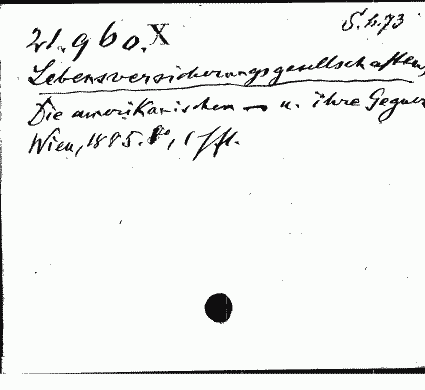 S. h. 73
21.960.X
Lebensversicherungsgesellschaften,
Die amerikanischen — u. ihre Gegner
Wien, 1885. 8o, 1